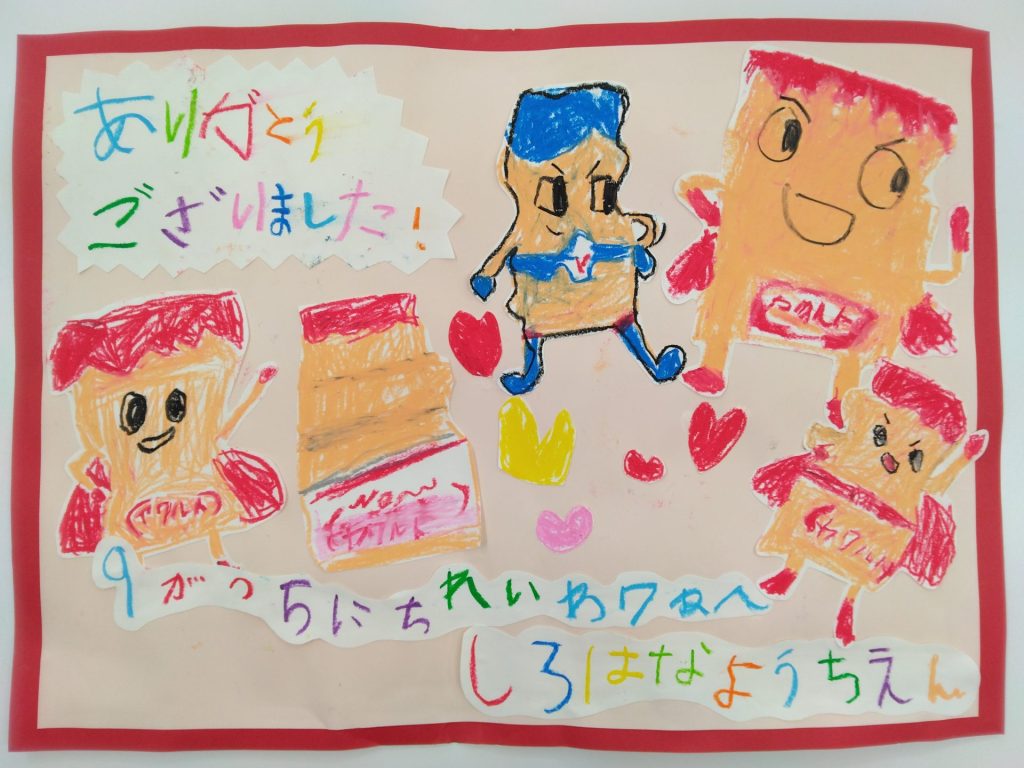 ありがとう
ございました!
ヤクルト
ヤクルト
New
ヤクルト
ヤクルト
9がつ5にちれいわ7ねん
しろはなようちえん